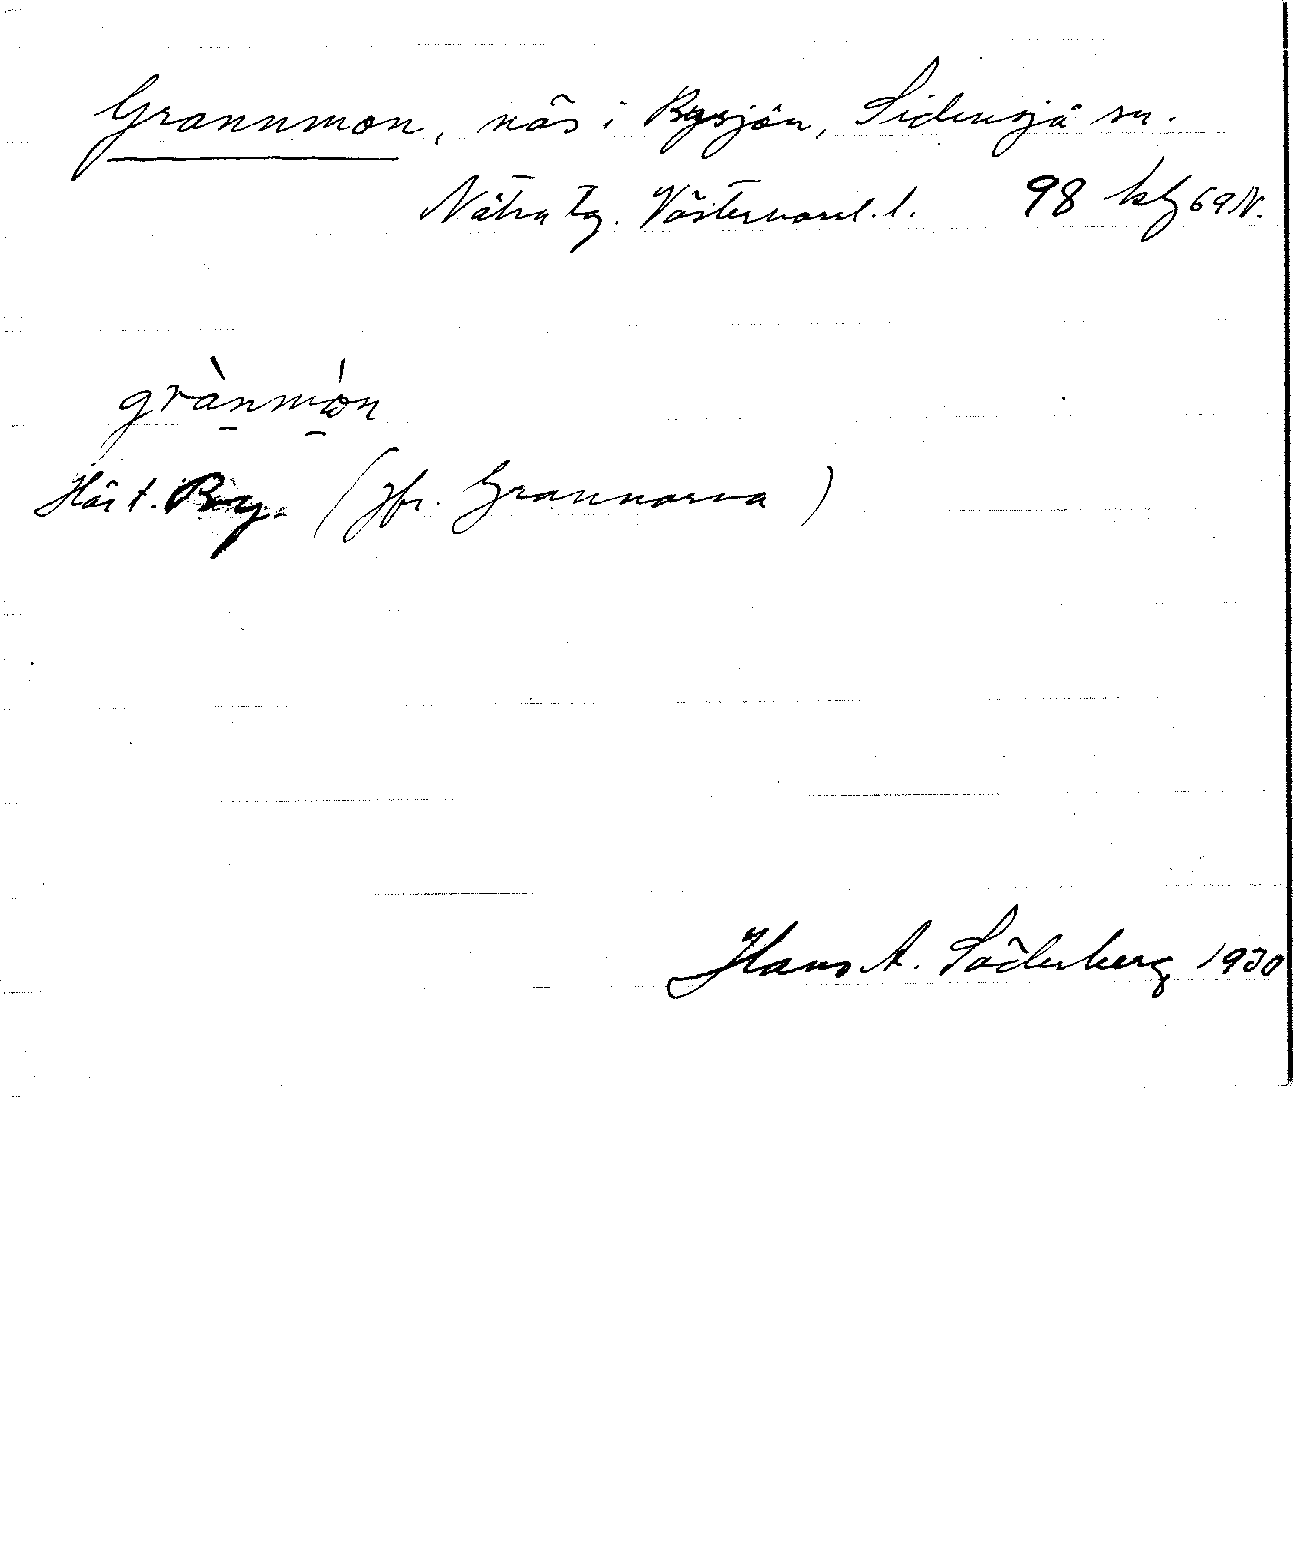 Grannmon, näs i Bysjön, Sidensjö sn.
Nätra tg. Västernorrl. l. 98 kbl 69 N.
grànmòn
Hör t. By. (Jfr. Grannarna)
Hans A. Söderberg 1930